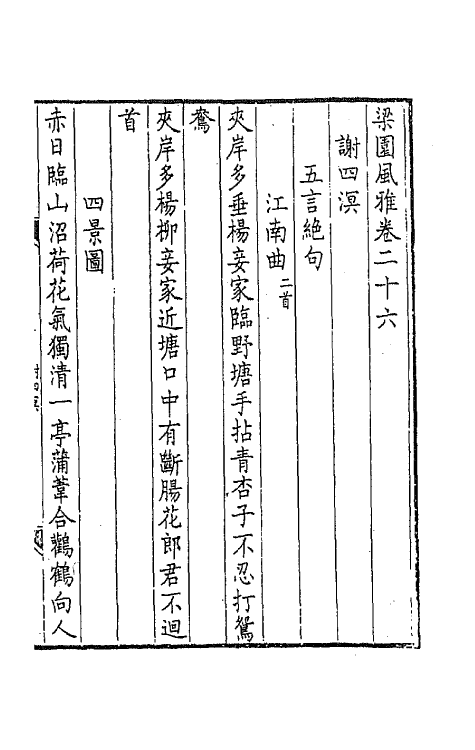 梁園風雅卷二十六
謝四溟
五言絕句
江南曲二首
夾岸多垂楊妾家臨野塘手拈青杏子不忍打鴛
鴦
夾岸多楊柳妾家近塘口中有斷腸花郎君不迴
首
四景圖
赤日臨山沼荷花氣獨清一亭蒲葦合鸛鶴向人